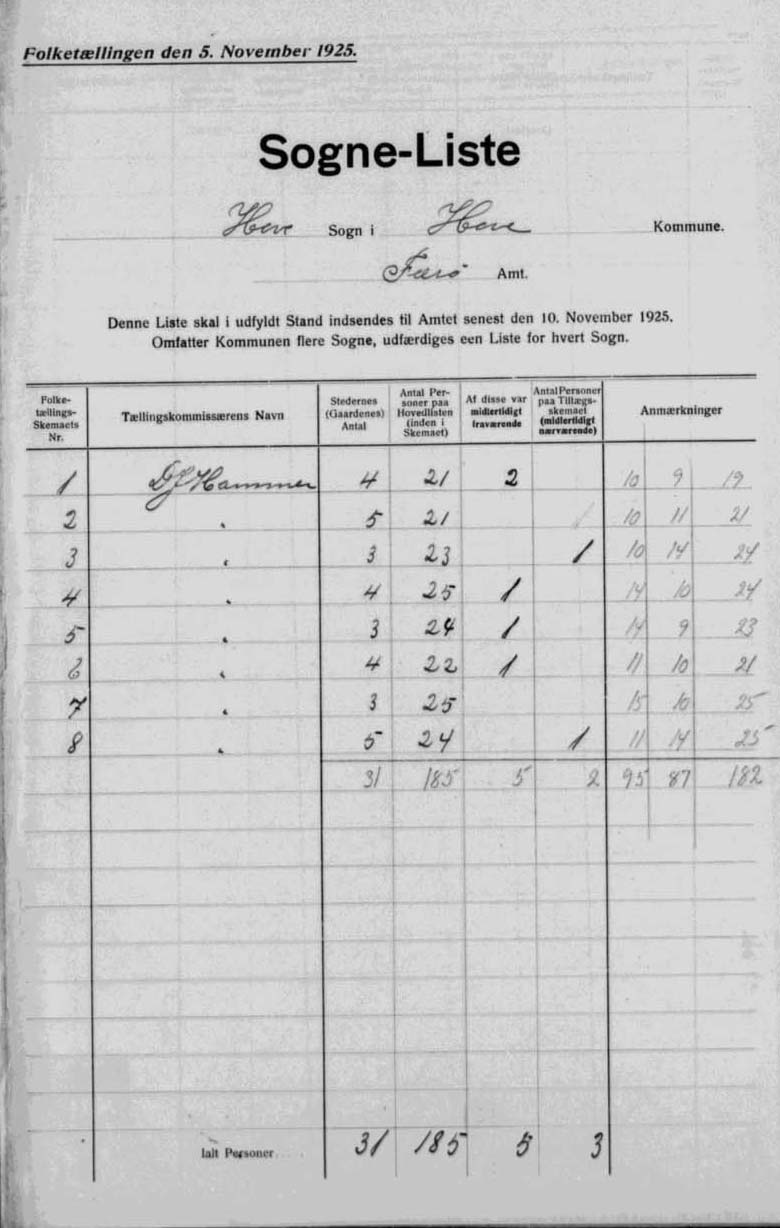 Folketællingen den 5. November 1925.
Sogne-Liste
Hove Sogn i Hove Kommune.
Færø Amt.
Denne Liste skal i udfyldt Stand indsendes til Amtet senest den 10. November 1925.
Omfatter Kommunen flere Sogne, udfærdiges een Liste for hvert Sogn.
Folketællings-Skemaets Nr. Tællingskommissærens Navn Stedernes (Gaardenes) Antal Antal Personer paa Hovedlisten (inden i Skemaet) Af disse var midlertidigt fraværende Antal Personer paa Tillægsskemaet (midlertidigt nærværende) Anmærkninger
1 DJ Hammer 4 21 2 10 9 19
2 " 5 21 10 11 21
3 " 3 23 1 10 14 24
4 " 4 25 1 14 10 24
5 " 3 24 1 14 9 23
6 " 4 22 1 11 10 21
7 " 3 25 15 10 25
8 " 5 24 1 11 14 25
31 185 5 2 95 87 182
Ialt Personer 31 185 5 3